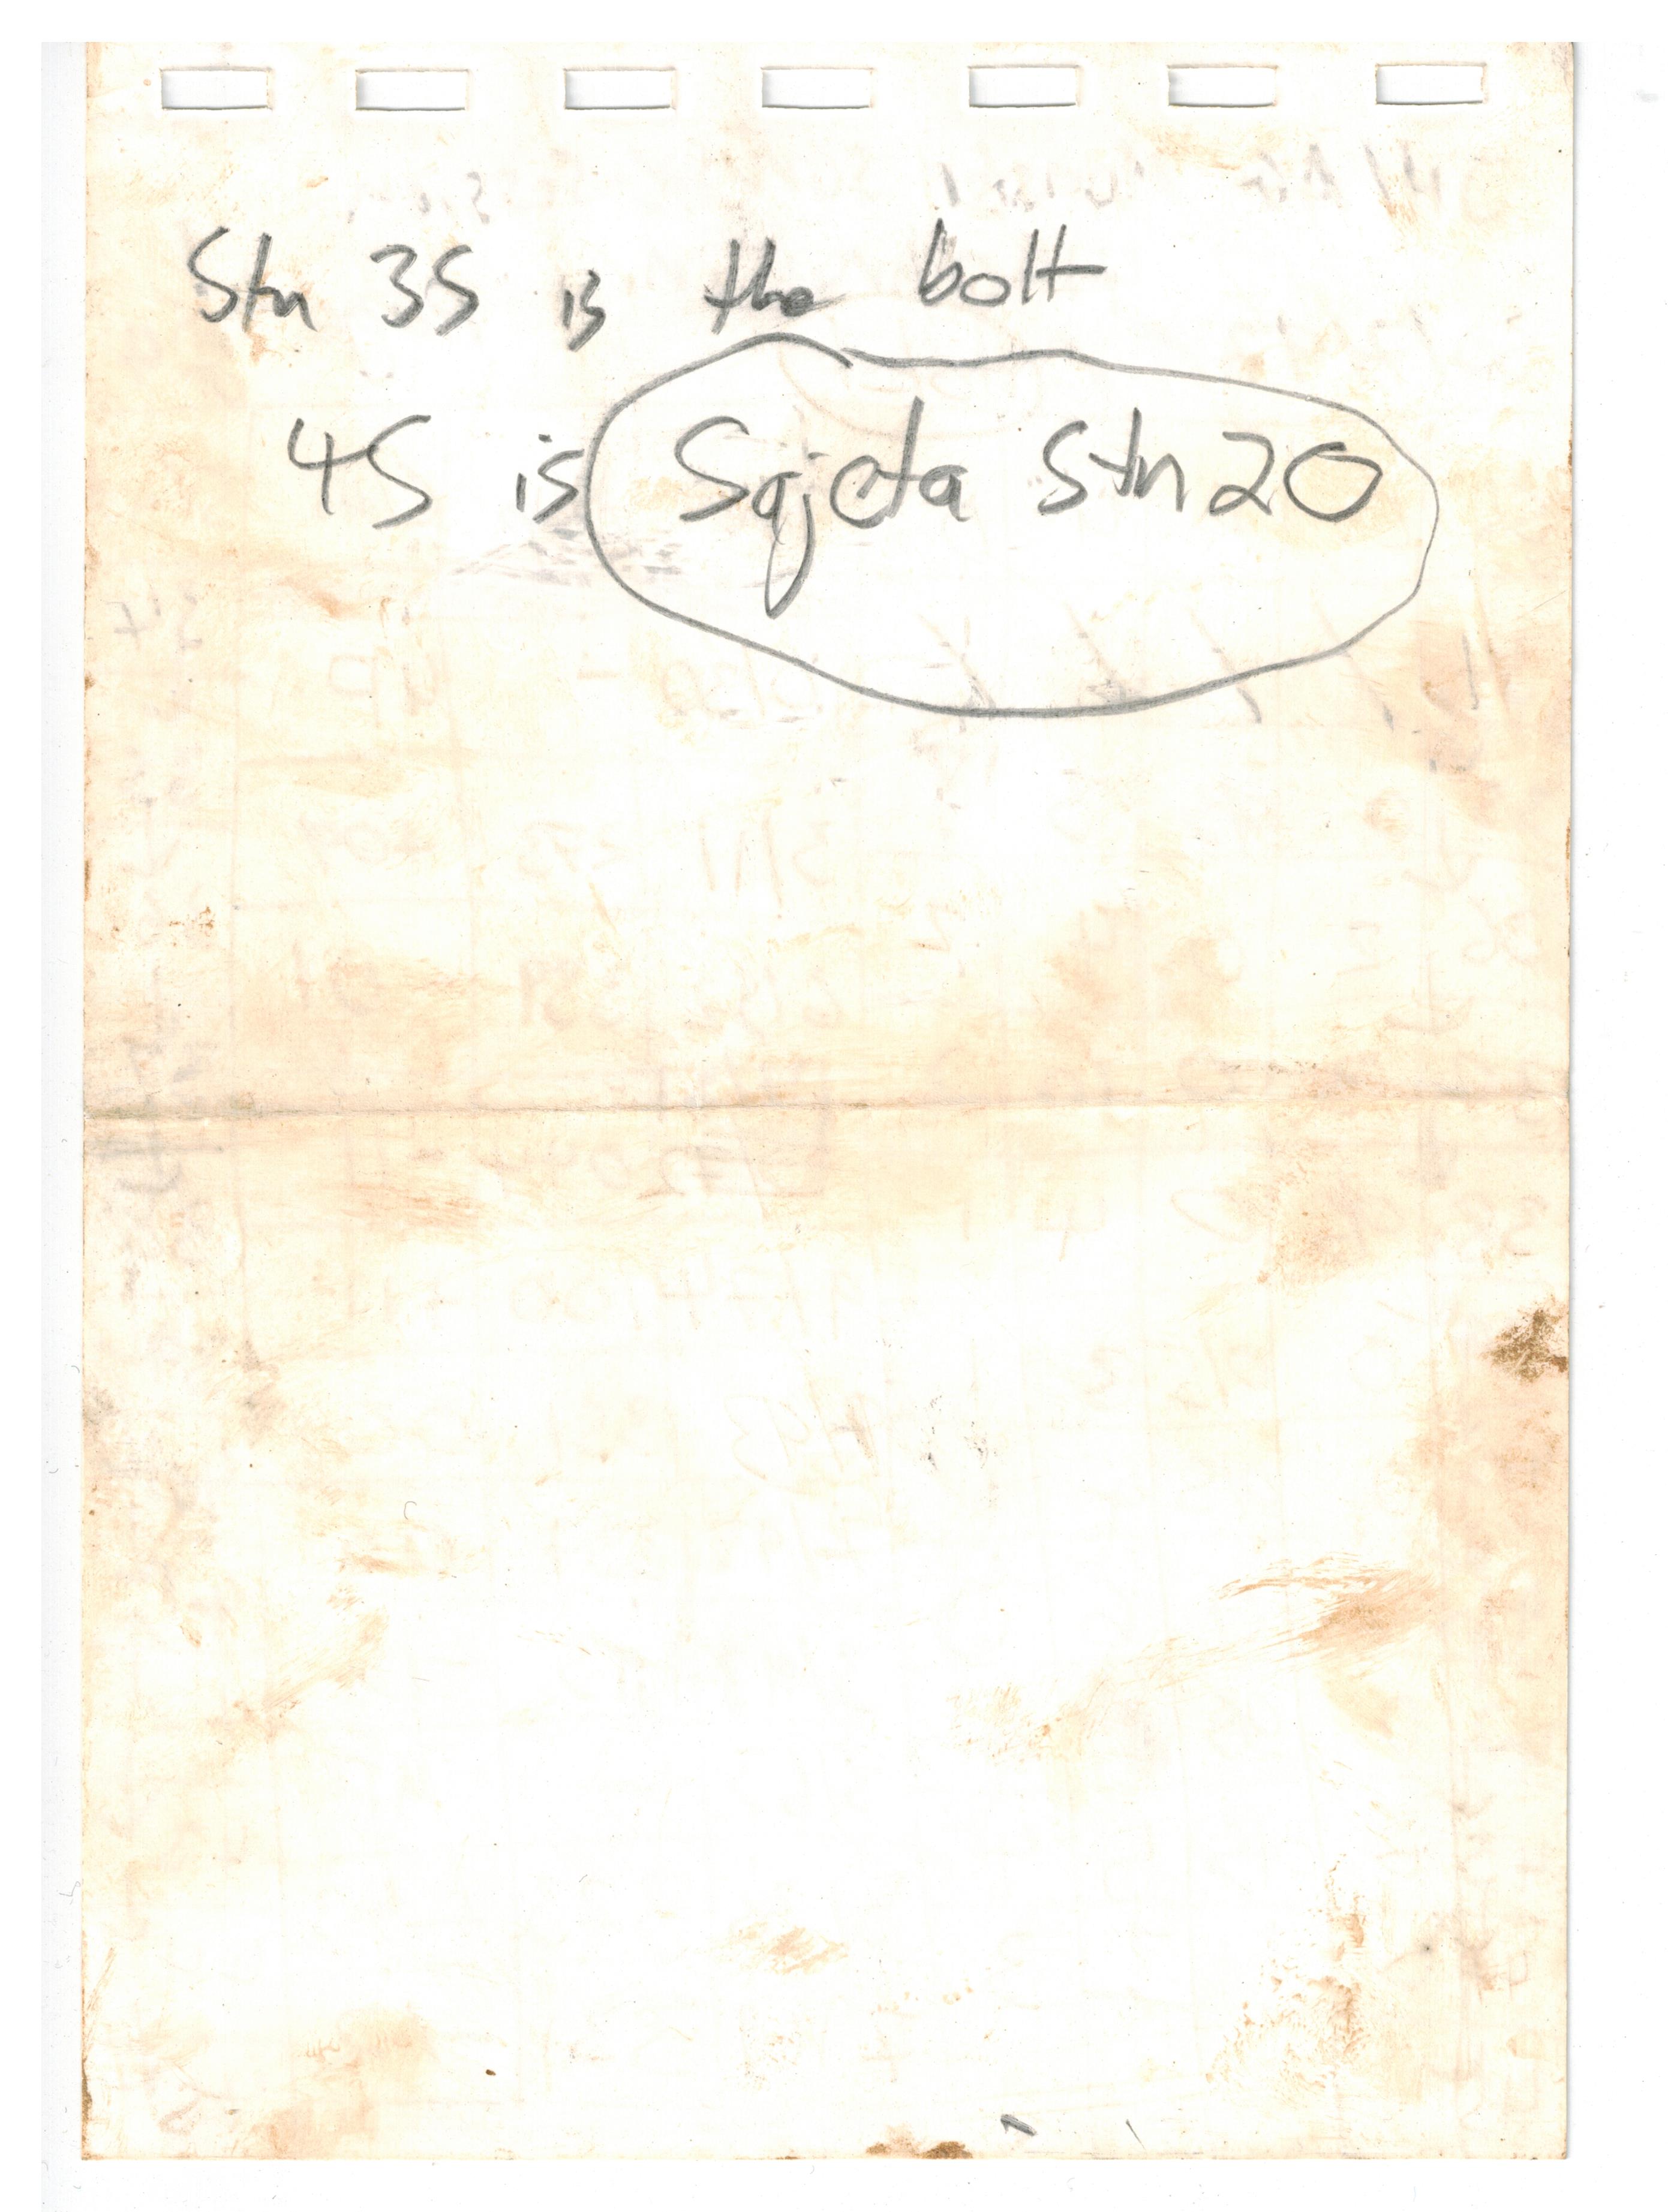 Stn 35 is the bolt
45 is Sajeta Stn 20